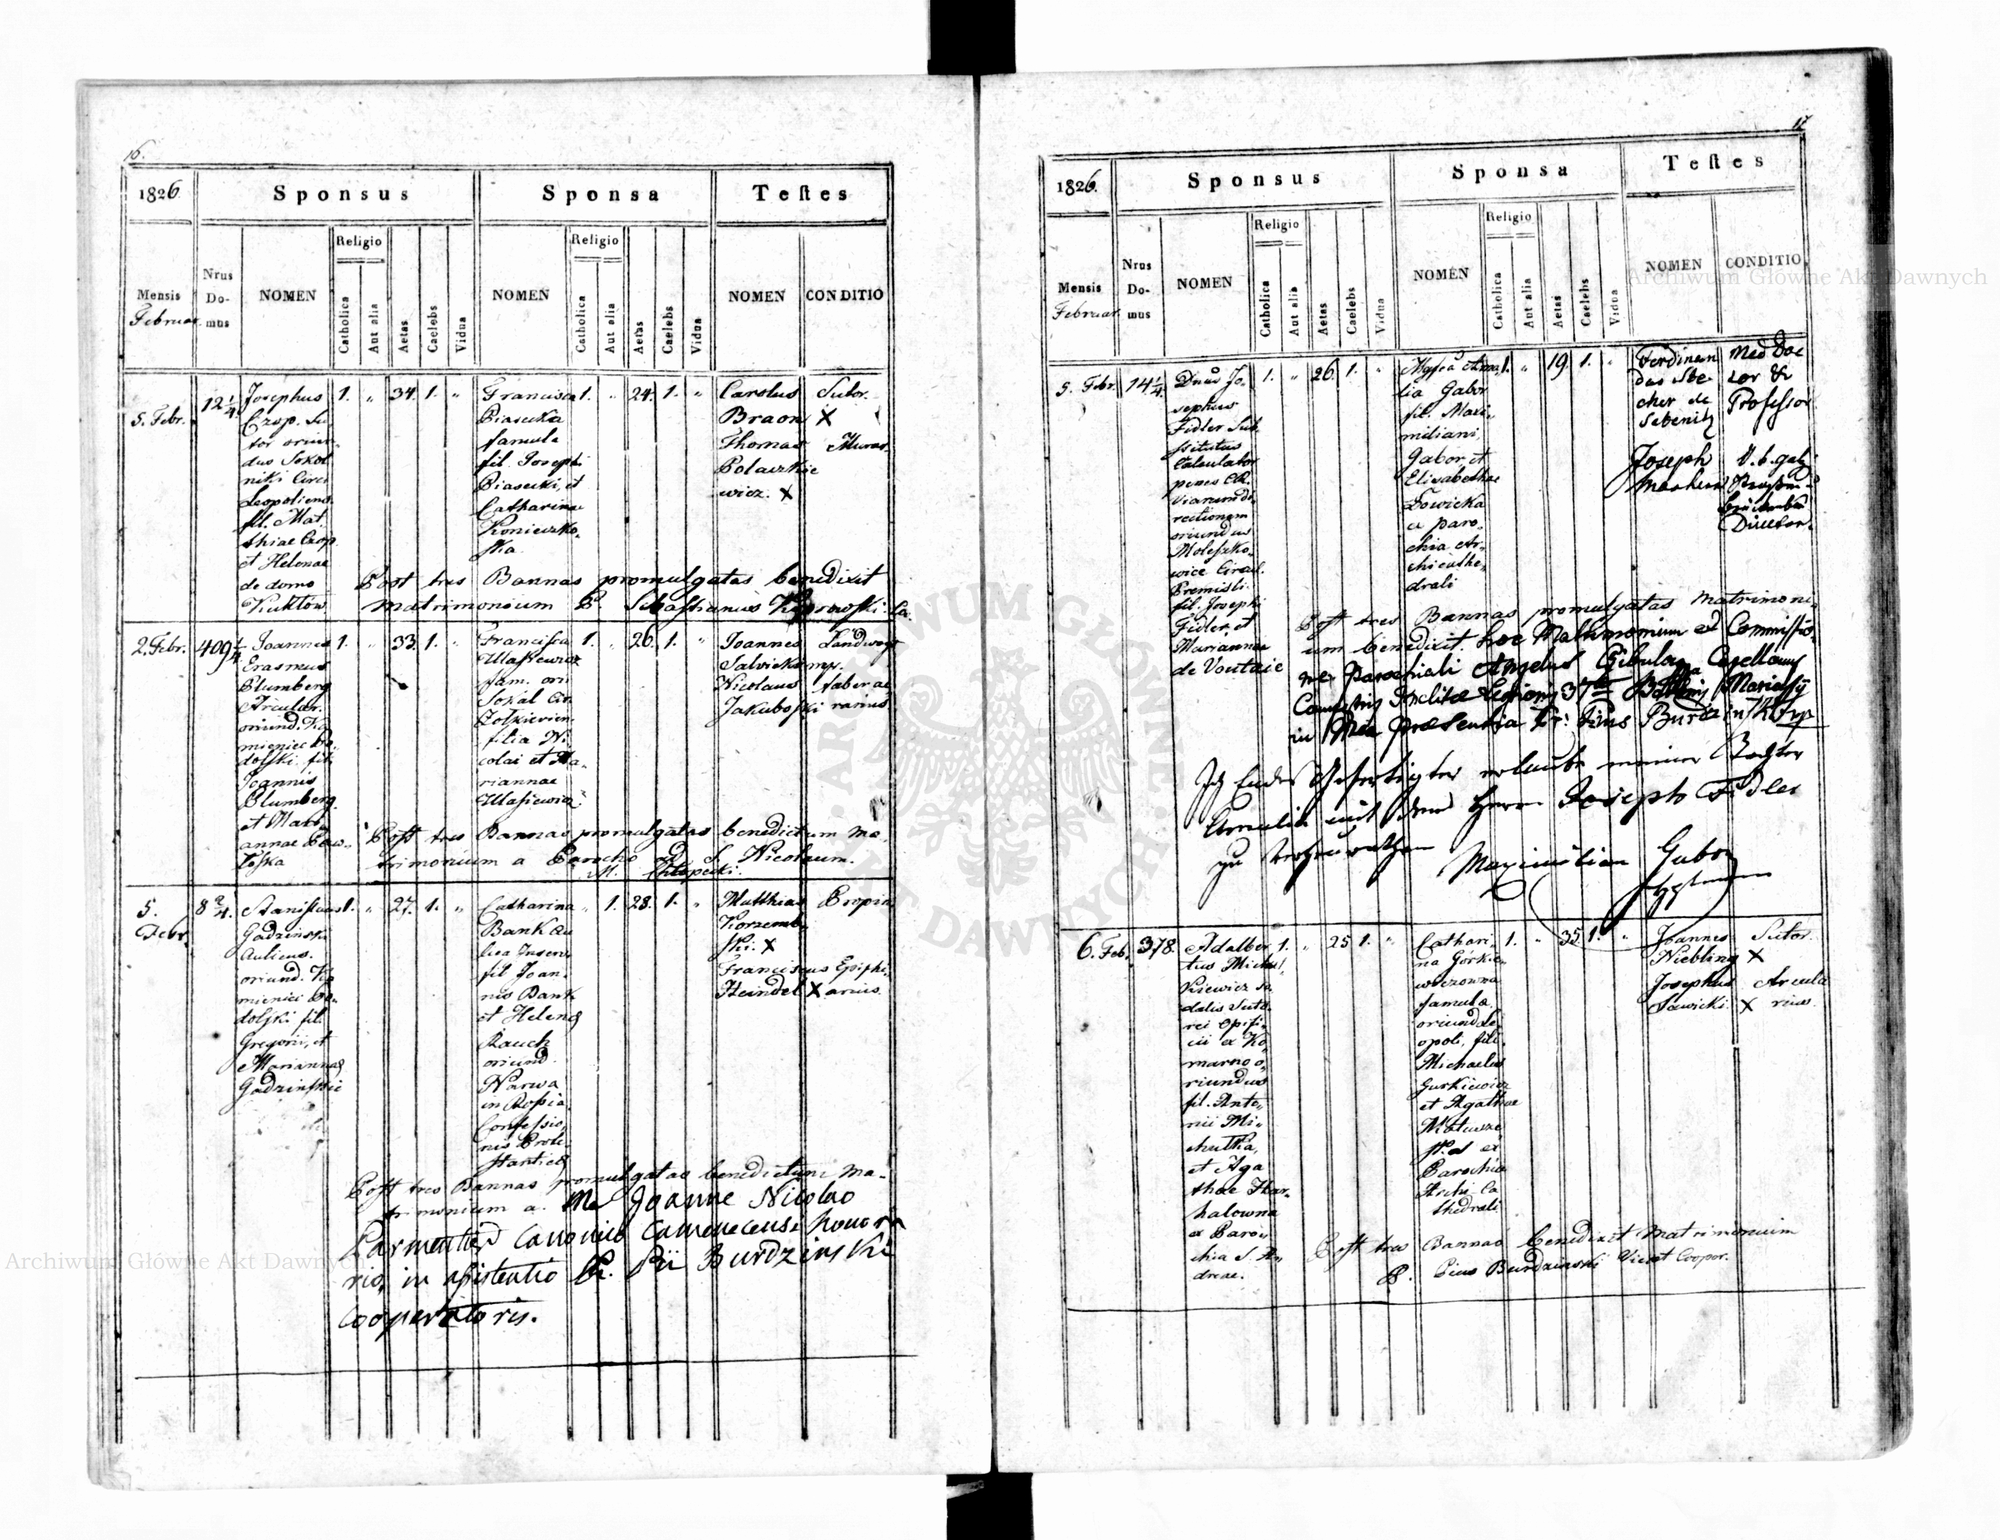 16.
1826.
Sponsus
Sponsa
Testes
Mensis
Februar.
Nrus
Do-
mus
NOMEN
Religio
Catholica
Aut alia
Aetas
Caelebs
Vidua
NOMEN
Religio
Catholica
Aut alia
Aetas
Caelebs
Vidua
NOMEN
CONDITIO
5. Febr.
12 1/4.
Josephus
Czop. Su
tor oriun
dus Sokol
niki Circ.
Leopoliens.
fil. Mat.
thiae Czop
et Helenae
de domo
1. „ 34. 1. „
Francisca
Biasecka
famula
fil. Josephi
Biasecki, et
Catharinae
1. „ 24. 1. „
Carolus
Braon X
Thomas
Polaszkie
wicz. X
Sutor.
Murar.
Post tres Bannas promulgatas benedixit
matrimonium P. Sebastianus
2. Febr.
409 1/4
Joannes
Erasmus
Blumberg
Arcular.
oriund. Ka
mieniec Po
dolski fil.
Joannis
Blumberg
et Mari
annae
1. „ 33. 1. „
Francisca
Ulasiewicz
fam. ori
Sokal Cir.
Zolkievien.
filia Ni
colai et Ma
riannae
Ulasiewicz
1. „ 26. 1. „
Joannes
Nicolaus
Jakuboski
faber ae
rarius
Post tres Bannas promulgatas benedictum ma
trimonium a Parocho ad S. Nicolaum.
M. Chlopecki.
5.
Febr.
8 2/4.
Stanislaus
Gadzinski
Aulicus.
oriund. Ka
mieniec Po
dolski fil.
Gregorii, et
Mariannae
Gadzinskie
1. „ 27. 1. „
Catharina
Bank
fil Joan.
nis Bank
et Helenae
Rauch
oriund.
Narwa
in Rossia
Confessio
nis Prote
stantice
„ 1. 28. 1. „
Matthias
Korzemb
ski. X
Franciscus
Heindel X
Propin
Ephipi
arius.
Post tres Bannas promulgatas benedictum ma-
trimonium a. Me Joanne Nicolao
Parmentier Canonico Camenecensi honora
rio, in assistentia Pr. Pii Burdzinski
Cooperatoris.
17
1826.
Sponsus
Sponsa
Testes
Mensis
Februar.
Nrus
Do-
mus
NOMEN
Religio
Catholica
Aut alia
Aetas
Caelebs
Vidua
NOMEN
Religio
Catholica
Aut alia
Aetas
Caelebs
Vidua
NOMEN
CONDITIO
5. Febr.
14 1/4.
Dnus Jo.
sephus
Fidler Sub
stitutus
Calculator
penes
Viarum di
rectionem
oriundus
Moleszko
wice Circul.
Premisli
fil. Josephi
Fidler, et
Marianna
de
1. „ 26. 1. „
Ama
lia Gabor
fil. Maxi
miliani
Gabor, et
Elisabethae
Lowicka
ex paro
chia Ar
chicathe
drali
1. „ 19. 1. „
Ferdinan
dus Ste
cher de
Sebenitz
Joseph
Med Doc
tor &
Professor
Director.
Post tres Bannas promulgatas Matrimoni
um benedixit. Hoc Matrimonium ex Commissio
ne Parochiali Angelus Capellanus
Legionis 37mae
in Mea praesentia Fr: Pius Burdzinski Cop
Ich Endes Gefertigter erlaube meiner Tochter
Amalia mit dem Herrn Joseph Fidler
zu verheurathen
Maximilian Gabor
6. Feb.
378.
Adalber
tus Michal
kiewicz so
dalis suto
rei opifi
cii a Ko
marno o
riundus
fil. Anto
nii Mi
chutka,
et Aga
thae
ex Paro
chia S. An
dreae.
1. „ 25 1. „
Cathari
na Górkie
wiczowna
famula
oriund Le
opoli, fili.
Michaelis
Gurkiewicz
et Agathae
ex
Parochia
Archi Ca
thedrali
1. „ 35. 1. „
Joannes
Niebling X
Josephus
Sawicki. X
Sutor.
Arcula
rius.
Post tres Bannas benedixit Matrimonium
P. Pius Burdzinski Vicat Cooper.
Archiwum Główne Akt Dawnych
Archiwum Główne Akt Dawnych
ARCHIWUM GŁÓWNE AKT DAWNYCH